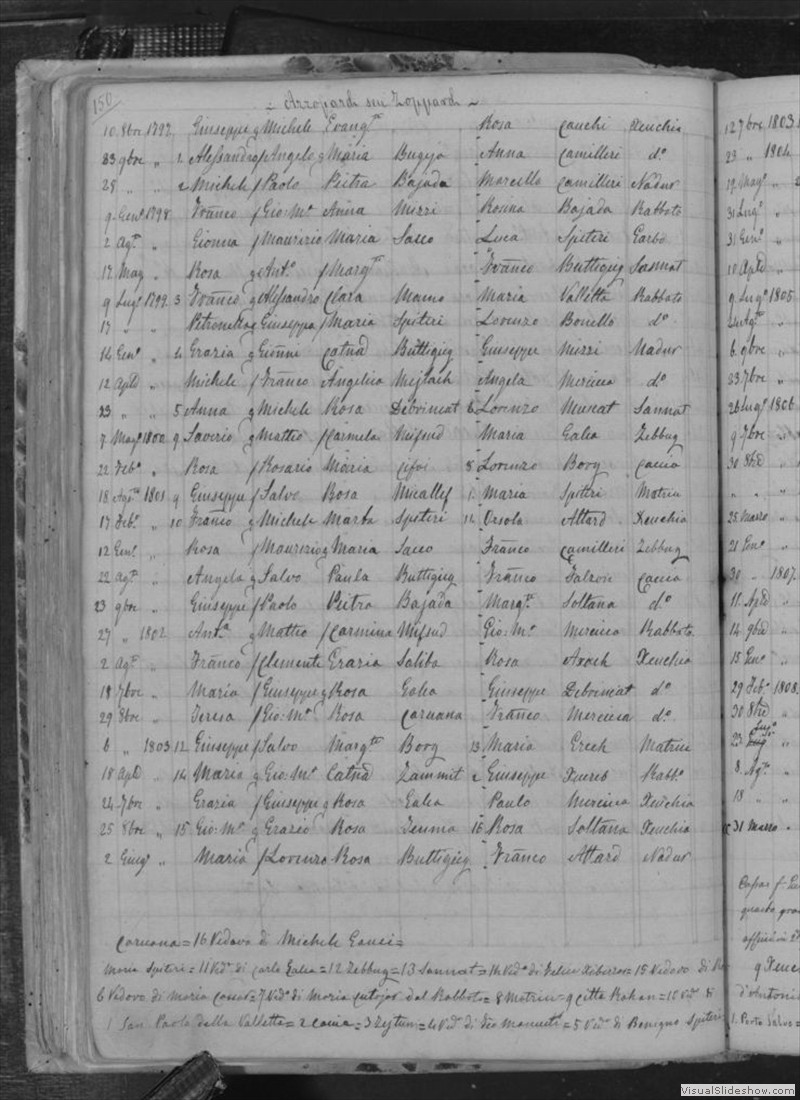 150
Azzopardi seu Zoppardi
10 8bre 1797. Giuseppe q Michele Evang.ta Rosa Cauchi Xeuchia
23 9bre „ 1 Alessandro f Angelo q Maria Bugeja Anna Camilleri d.o
25 „ „ 2 Michele f Paolo Pietra Bajada Marcello Camilleri Nadur
9 Gen.o 1798. Franco f Gio: M.a Anna Mizzi Rosina Bajada Rabbato
2 Ag.to „ Gionna f Maurizio Maria Sacco Luca Spiteri Garbo
17 Mag „ Rosa q Ant.o f Marg.ta Franco Buttigieg Sannat
9 Lug.o 1799. 3 Franco q Alessandro Clara Mamo Maria Valletta Rabbato
17 „ „ Petronilla q Giuseppe f Maria Spiteri Lorenzo Bonello d.o
14 Gen.o „ 4 Grazia q Gionni Catnd Buttigieg Giuseppe Mizzi Nadur
12 Aple „ Michele f Franco Angelica Mejlach Angela Mercieca d.o
23 „ „ 5 Anna q Michele Rosa Debrincat 6 Lorenzo Muscat Sannat
7 Mag.o 1800. 9 Saverio q Matteo f Carmela Mifsud Maria Galea Zebbug
22 Feb.o „ Rosa f Rosario Maria 8 Lorenzo Borg Caccia
18 Ag.to 1801. 9 Giuseppe f Salvo Rosa Micallef 1. Maria Spiteri Matrice
17 Feb.o „ 10 Franco q Michele Marta Spiteri 11. Orsola Attard Xeuchia
12 Gen.o „ Rosa f Maurizio q Maria Sacco Franco Camilleri Zebbug
22 Ag.to „ Angela q Salvo Paula Buttigieg Franco Falzon Caccia
23 9bre „ Giuseppe f Paolo Pietra Bajada Marg.ta Soltana d.o
27 „ 1802. Ant.a q Matteo f Carmina Mifsud Gio: M.a Mercieca Rabbato
2 Ag.to „ Franco f Clemente Grazia Saliba Rosa Axach Xeuchia
18 7bre „ Maria f Giuseppe q Rosa Galea Giuseppe Debrincat d.o
29 8bre „ Teresa f Gio: M.a Rosa Caruana Franco Mercieca d.o
6 „ 1803 12 Giuseppe f Salvo Marg.ta Borg 13 Maria Grech Matrice
18 Aple „ 14 Maria q Gio: M.a Catnd Zammit 2 Giuseppe Xuereb Rabb.o
24 7bre „ Grazia f Giuseppe q Rosa Galea Paulo Mercieca Xeuchia
25 8bre „ 15 Gio: M.a q Grazio Rosa Zenma 16 Rosa Soltana Xeuchia
2 Giug.o „ Maria f Lorenzo Rosa Buttigieg Franco Attard Nadur
Caruana = 16 Vedovo di Michele Gauci =
Maria Spiteri = 11 Ved.a di Carlo Galea = 12 Zebbug = 13 Sannat = 14 Ved.a di Felice Xiberras = 15 Vedovo di
6 Vedovo di Maria Cassar = 7 Ved.o di Maria Cutajar dal Rabbato = 8 Matrice = 9 Citta Rohan = 10 Ved. di
1 San Paolo della Valletta = 2 Caccia = 3 Zejtun = 4 Ved.a di = 5 Ved.a di Benigno Spiteri
12 7bre 1803.
23 „ 1804
19 Mag.o „
31 Lug.o „
31 Gen.o „
10 Aple „
9 Lug.o 1805
24 Ag.to „
6 9bre „
23 7bre „
26 Lug.o 1806
9 7bre „
30 8bre „
„ „ „
25 Marzo „
21 Gen.o „
30 „ 1807.
11. Aple „
14 9bre „
15 Gen.o „
29 Feb.o 1808.
30 8bre „
23 Lug.o „
8. Ag.to „
18 „ „
31 Marzo „
VisualSlideshow.com